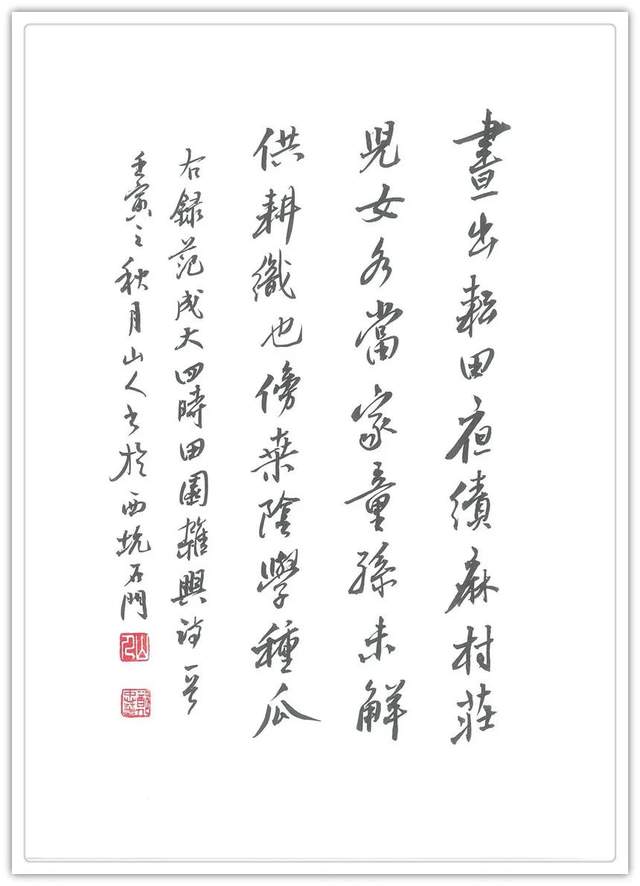 晝出耘田夜績麻村莊
兒女各當家童孫未解
供耕織也傍桑陰學種瓜
右録范成大四時田園雜興詩一首
壬寅之秋月山人书於西坑石門